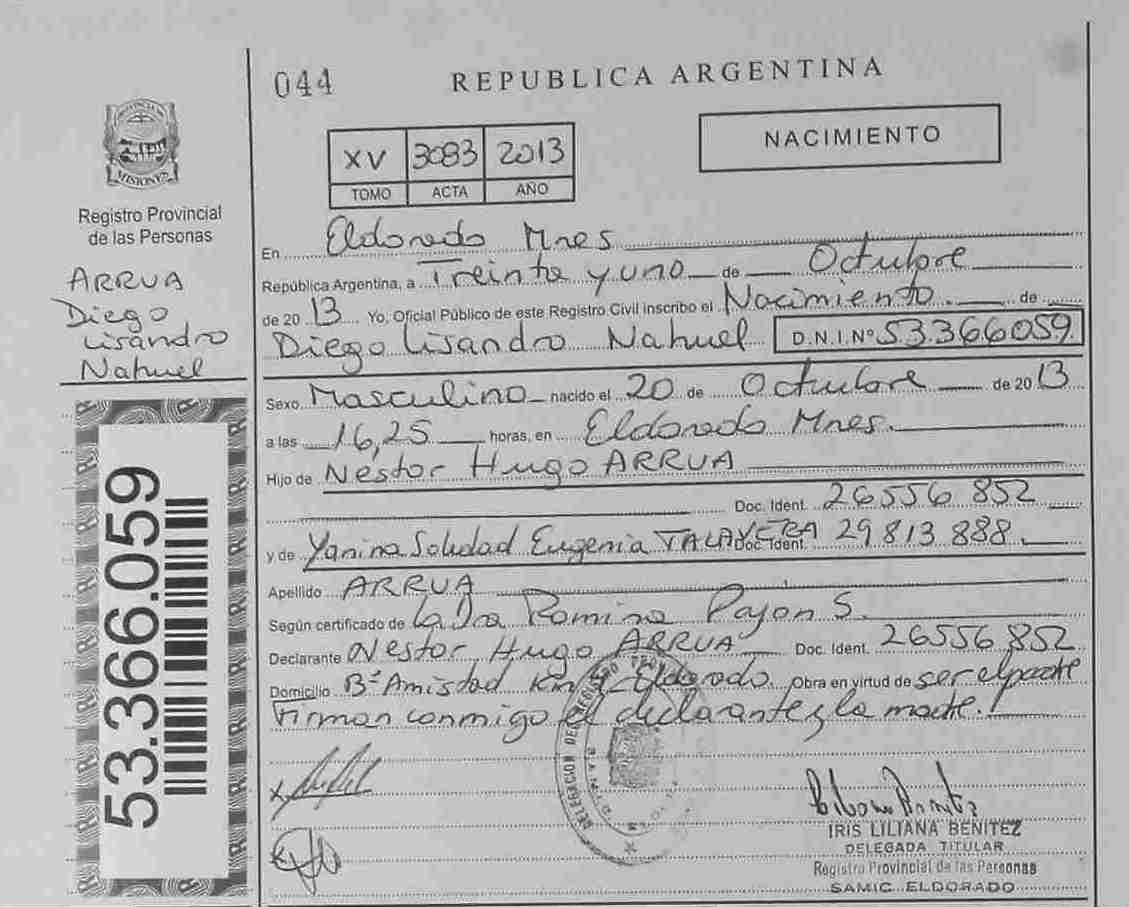 044
REPUBLICA ARGENTINA
NACIMIENTO
XV 3083 2013
TOMO ACTA AÑO
PROVINCIA DE
MISIONES
Registro Provincial
de las Personas
ARRUA
Diego
Lisandro
Nahuel
53.366.059
En Eldorado Mnes
República Argentina, a Treinta y uno de Octubre
de 2013 Yo, Oficial Público de este Registro Civil inscribo el Nacimiento. de
Diego Lisandro Nahuel D.N.I.Nº 53.366.059.
Sexo Masculino nacido el 20 de Octubre de 2013
a las 16,25 horas, en Eldorado Mnes.
Hijo de Nestor Hugo ARRUA
Doc. Ident. 26556 852
y de Yanina Soledad Eugenia TALAVERA Doc. Ident. 29 813 888.
Apellido ARRUA
Según certificado de la Dra Romina Pajon S.
Declarante Nestor Hugo ARRUA Doc. Ident. 26556 852
Domicilio Bº Amistad Km Eldorado. Obra en virtud de ser el padre
Firman conmigo el declarante y la madre.
DELEGACION DEL REGISTRO
IRIS LILIANA BENITEZ
DELEGADA TITULAR
Registro Provincial de las Personas
SAMIC ELDORADO